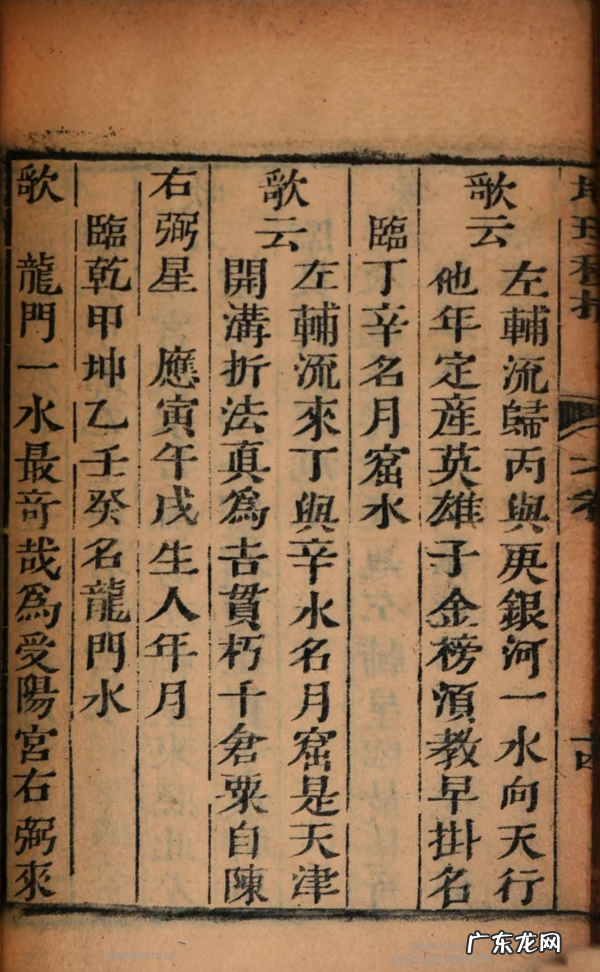 歌云
左輔流歸丙與庚銀河一水向天行
他年定産英雄子金榜須教早掛名
臨丁辛名月窟水
歌云
左輔流來丁與辛水名月窟是天津
開溝折法真為吉貫朽千倉粟自陳
右弼星　應寅午戌生人年月
臨乾甲坤乙壬癸名龍門水
歌　龍門一水最奇哉為受陽宮右弼來
广东龙网